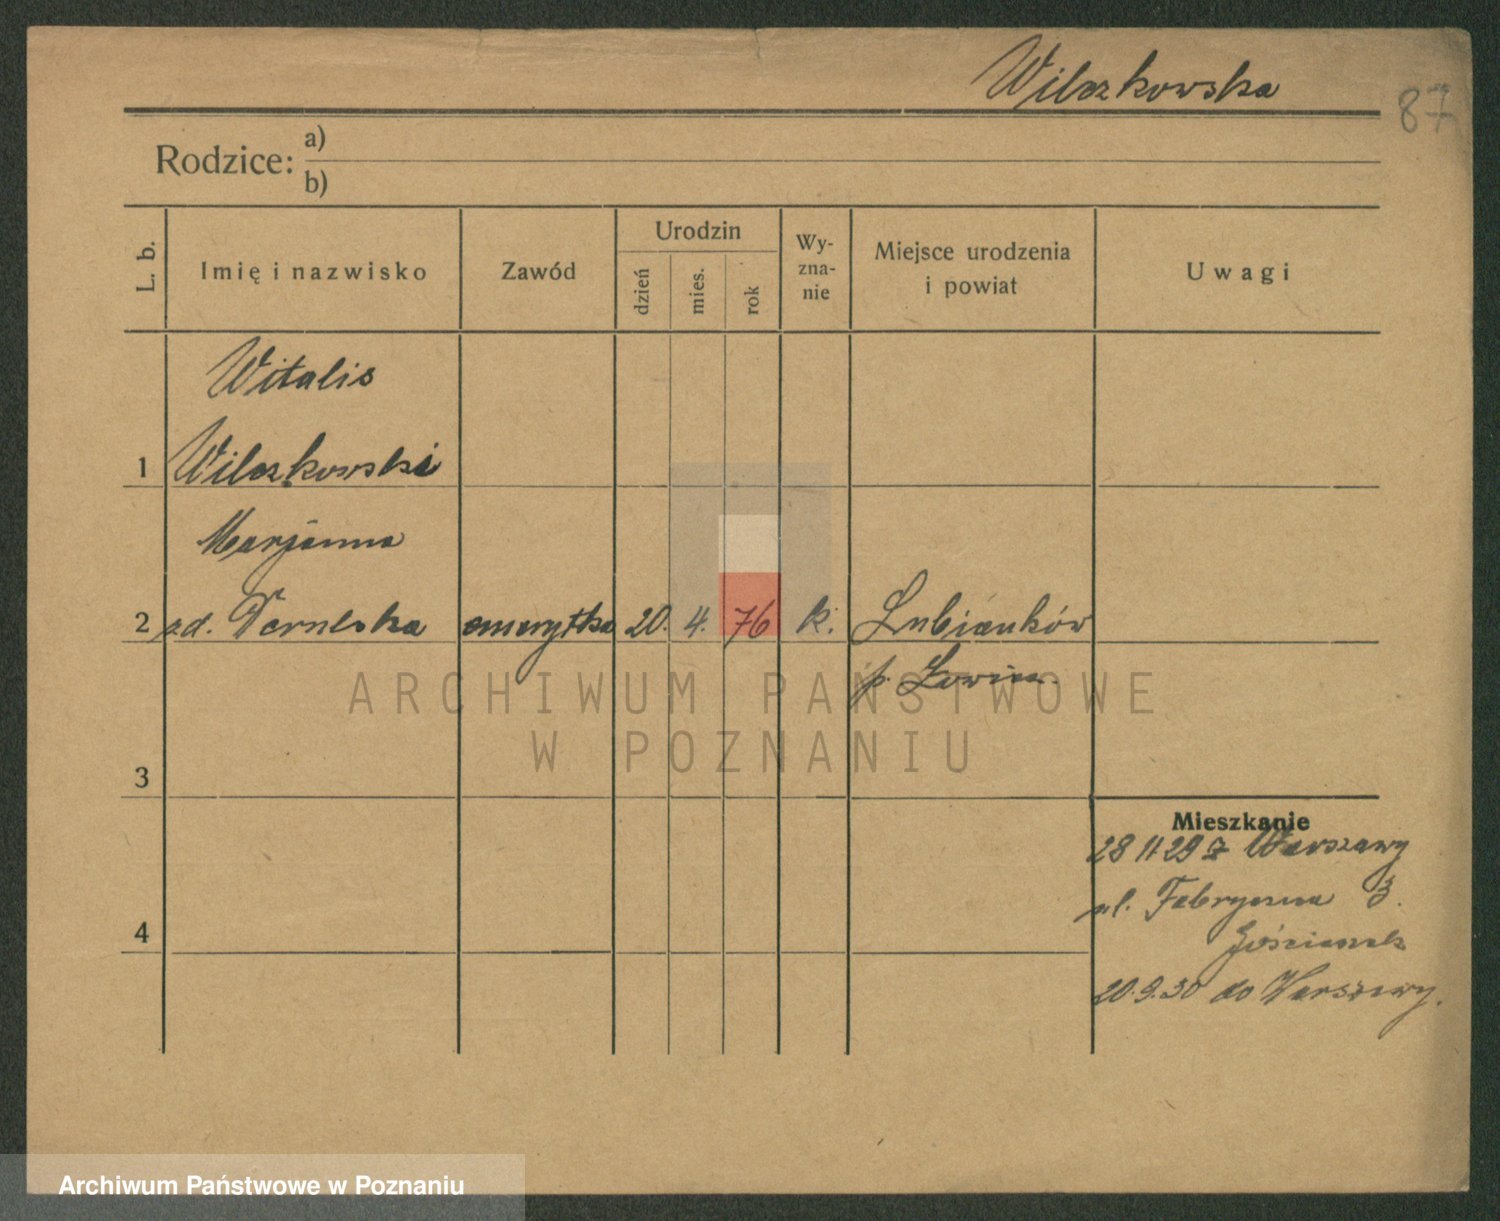 Wilczkowska
87
Rodzice: a)
b)
L. b.
Imię i nazwisko
Zawód
Urodzin
dzień
mies.
rok
Wy-
zna-
nie
Miejsce urodzenia
i powiat
Uwagi
Witalis
1 Wilczkowski
Marjanna
2 zd. emerytka 20. 4. 76 k. Lubianków
p. Łowicz.
ARCHIWUM PAŃSTWOWE
W POZNANIU
3
Mieszkanie
28 11 29 z Warszawy
ul. Fabryczna 3.
4
20.9.30 do Warszawy.
Archiwum Państwowe w Poznaniu